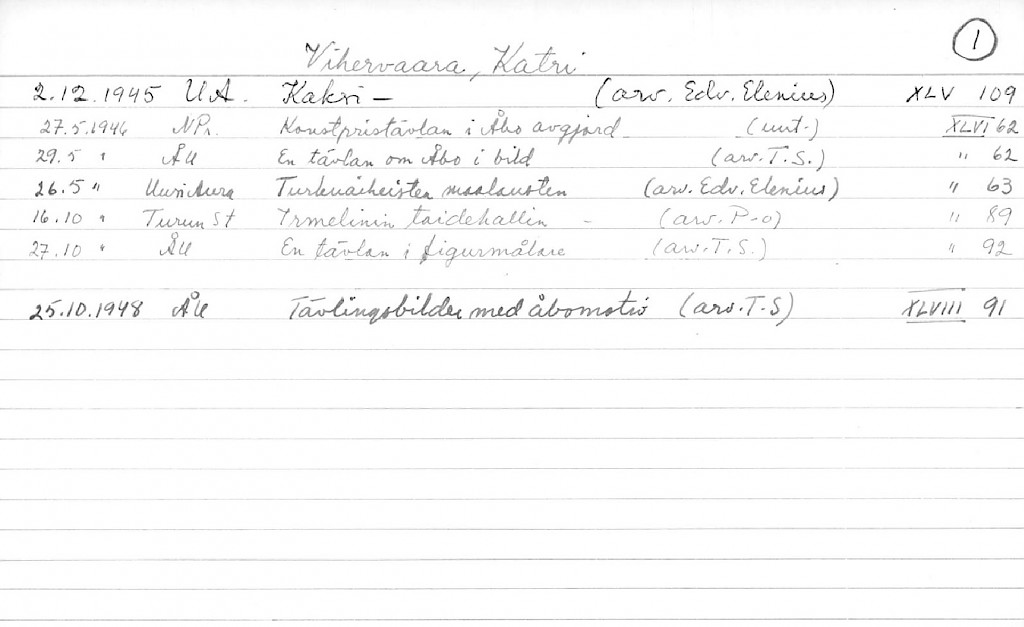 1
Vihervaara, Katri
2.12.1945 U A. Kaksi — (arv. Edv. Elenius) XLV 109
27.5.1946 NPr. Konstpristävlan i Åbo avgjord (unt.) XLVI 62
29.5 " ÅU En tävlan om Åbo i bild (arv. T.S.) " 62
26.5 " Uusi Aura Turkuaiheisten maalausten (arv. Edv. Elenius) " 63
16.10 " Turun St Irmelinin taidehallin – (arv. P-o) " 89
27.10 " ÅU En tävlan i figurmålare (arv. T.S.) " 92
25.10.1948 ÅU Tävlingsbilder med åbomotiv (arv. T.S) XLVIII 91